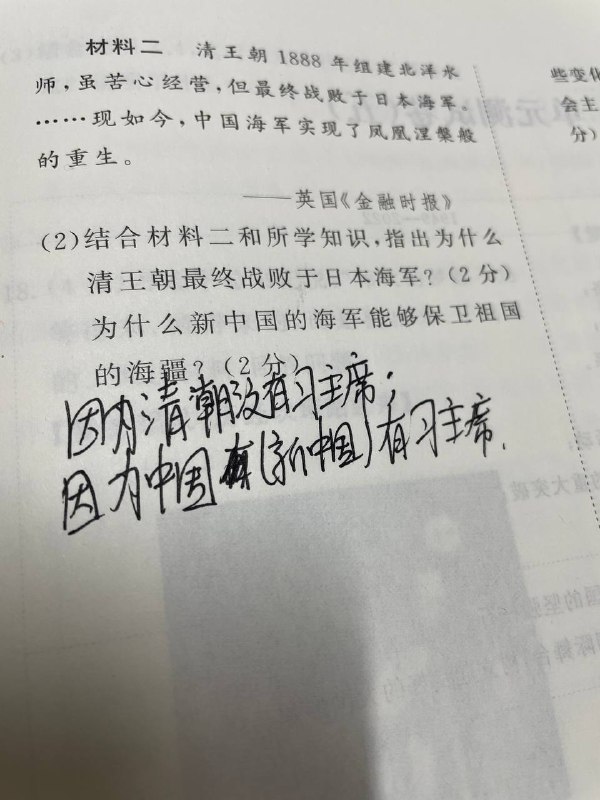 材料二 清王朝1888年组建北洋水
师，虽苦心经营，但最终战败于日本海军。
……现如今，中国海军实现了凤凰涅槃般
的重生。
——英国《金融时报》
(2)结合材料二和所学知识，指出为什么
清王朝最终战败于日本海军？(2分)
为什么新中国的海军能够保卫祖国
的海疆？(2分)
因为清朝没有习主席；
因为中国(新中国)有习主席.
些变化
会主
分)
重大突破
国的坚强